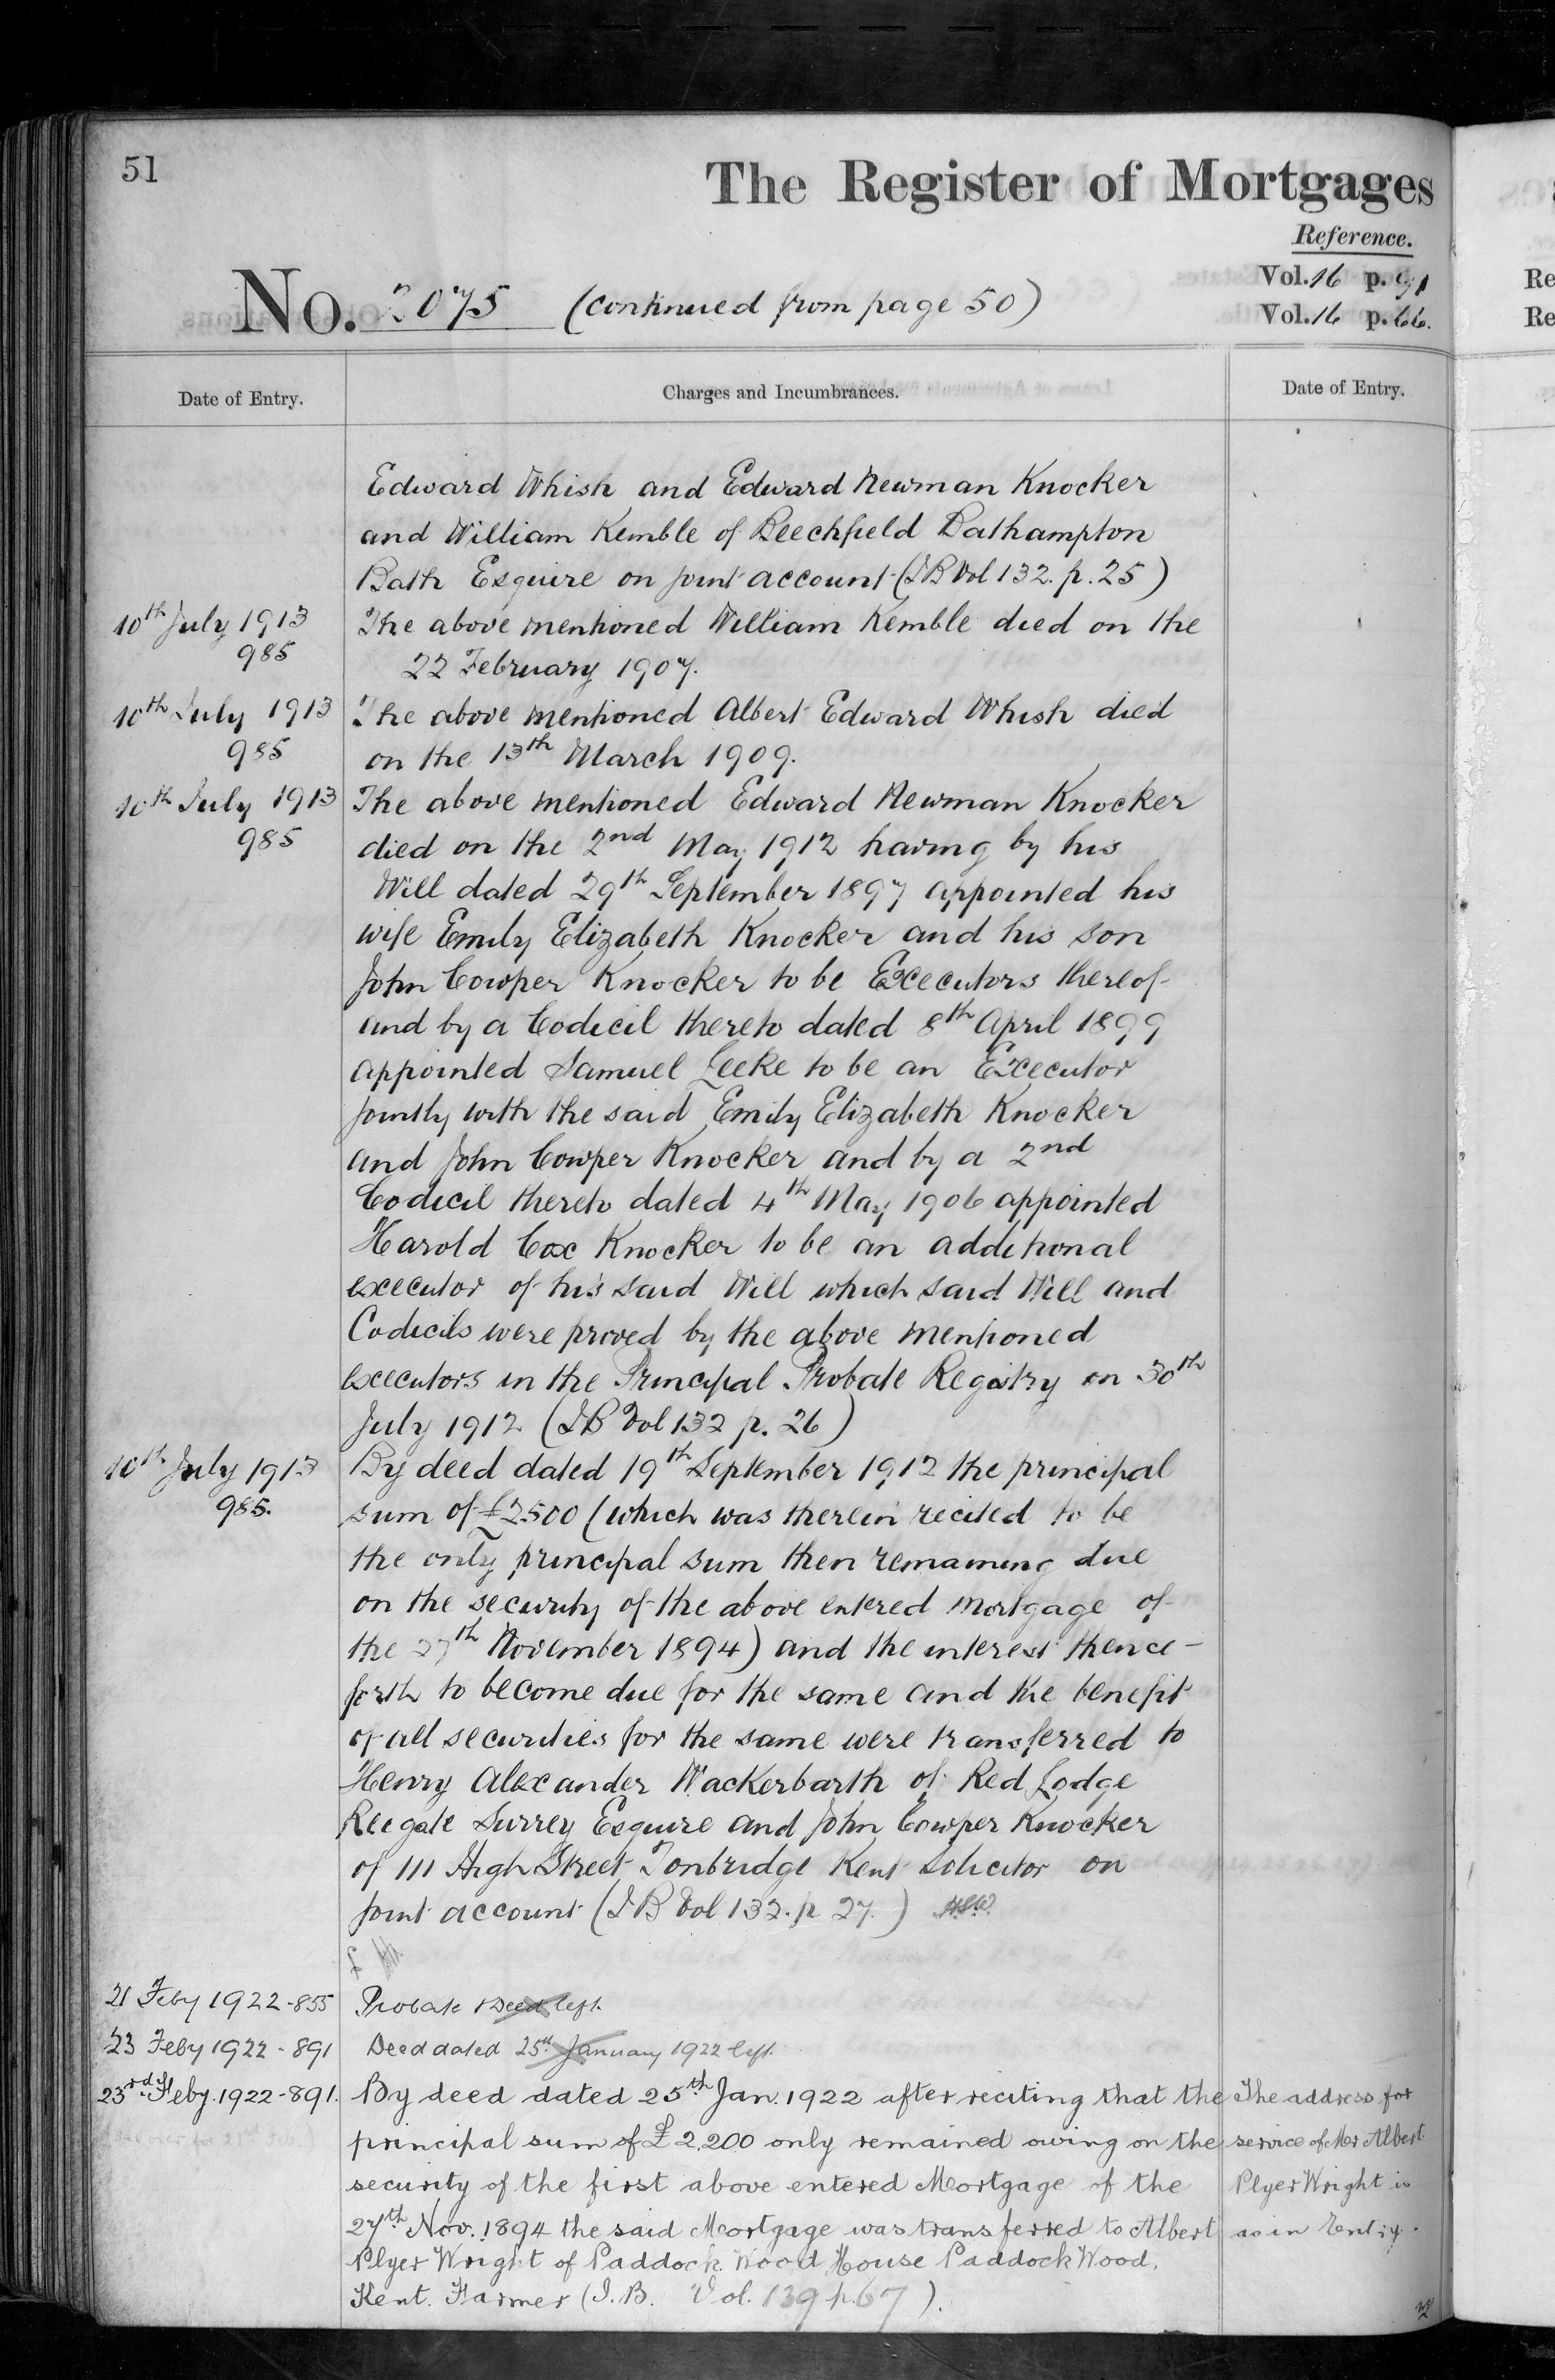 51
The Register of Mortgages
Reference.
Vol. 16 p. 91
Vol. 16 p. 66.
No. 2075 (continued from page 50)
Date of Entry.
Charges and Incumbrances.
Date of Entry.
Edward Whish and Edward Newman Knocker
and William Kemble of Beechfield Bathampton
Bath Esquire on joint account (I B Vol 132. p. 25)
10th July 1913
985
The above mentioned William Kemble died on the
22 February 1907.
10th July 1913
985
The above mentioned Albert Edward Whish died
on the 13th March 1909.
10th July 1913
985
The above mentioned Edward Newman Knocker
died on the 2nd May 1912 having by his
Will dated 29th September 1897 appointed his
wife Emily Elizabeth Knocker and his son
John Cowper Knocker to be Executors thereof
and by a Codicil thereto dated 8th April 1899
appointed Samuel Leeke to be an Executor
jointly with the said Emily Elizabeth Knocker
and John Cowper Knocker and by a 2nd
Codicil thereto dated 4th May 1906 appointed
Harold Cox Knocker to be an additional
executor of his said Will which said Will and
Codicils were proved by the above mentioned
executors in the Principal Probate Registry on 30th
July 1912 (I B Vol 132 p. 26)
10th July 1913
985.
By deed dated 19th September 1912 the principal
sum of £2500 (which was therein recited to be
the only principal sum then remaining due
on the security of the above entered mortgage of
the 27th November 1894) and the interest thence-
forth to become due for the same and the benefit
of all securities for the same were transferred to
Henry Alexander Wackerbarth of Red Lodge
Reigate Surrey Esquire and John Cowper Knocker
of 111 High Street Tonbridge Kent Solicitor on
joint account (I B Vol 132. p 27.)
21 Feby 1922-855 Probate Deed left.
23 Feby 1922-891 Deed dated 25th January 1922 left.
23rd Feby. 1922-891. By deed dated 25th Jan. 1922 after reciting that the
principal sum of £2,200 only remained owing on the
security of the first above entered Mortgage of the
27th Nov. 1894 the said Mortgage was transferred to Albert
Plyer Wright of Paddock Wood House Paddock Wood,
Kent. Farmer (I.B. Vol. 139 p. 67).
The address for
service of Mr Albert
Plyer Wright is
as in Entry.
Re
Re